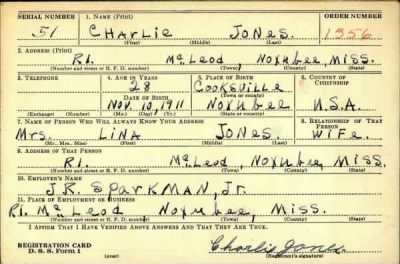 SERIAL NUMBER 1. NAME (Print) ORDER NUMBER
51 CHARLIE JONES. 1356
(First) (Middle) (Last)
2. ADDRESS (Print)
R1. McLeod, Noxubee, Miss.
(Number and street or R. F. D. number) (Town) (County) (State)
3. TELEPHONE 4. AGE IN YEARS 5. PLACE OF BIRTH 6. COUNTRY OF CITIZENSHIP
28 Cooksville
DATE OF BIRTH (Town or county)
Nov. 10, 1911 Noxubee U.S.A.
(Exchange) (Number) (Mo.) (Day) (Yr.) (State or country)
7. NAME OF PERSON WHO WILL ALWAYS KNOW YOUR ADDRESS 8. RELATIONSHIP OF THAT PERSON
Mrs. Lina Jones. Wife.
(Mr., Mrs., Miss) (First) (Middle) (Last)
9. ADDRESS OF THAT PERSON
R1. McLeod, Noxubee, Miss.
(Number and street or R. F. D. number) (Town) (County) (State)
10. EMPLOYER'S NAME
J.R. Sparkman, Jr.
11. PLACE OF EMPLOYMENT OR BUSINESS
R1. McLeod Noxubee, Miss.
(Number and street or R. F. D. number) (Town) (County) (State)
I AFFIRM THAT I HAVE VERIFIED ABOVE ANSWERS AND THAT THEY ARE TRUE.
REGISTRATION CARD
D. S. S. Form 1 (over) Charlie Jones
(Registrant's signature)